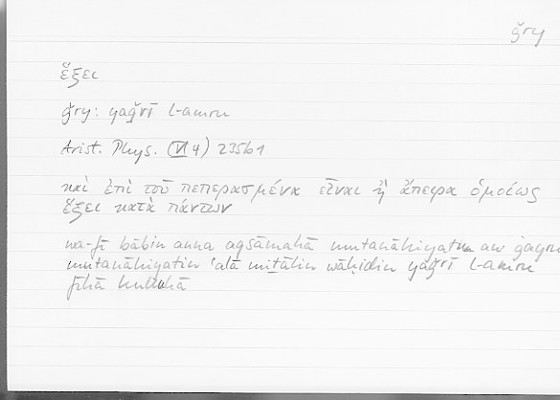 ǧry
ἕξει
ǧry: yaǧrī l-amru
Arist. Phys. (VI 4) 235b1
καὶ ἐπὶ τοῦ πεπερασμένα εἶναι ἢ ἄπειρα ὁμοίως
ἕξει κατὰ πάντων
wa-fī bābin anna aqsāmahā mutanāhiyatun aw ġayru
mutanāhiyatin ʿalā miṯālin wāḥidin yaǧrī l-amru
fīhā kullihā